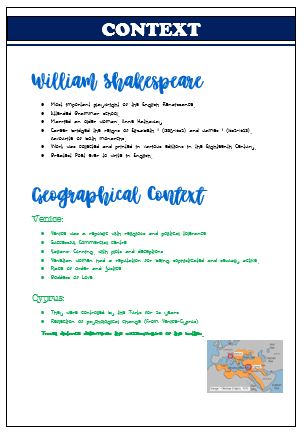 CONTEXT
William Shakespeare
Most important playwright of the English Renaissance.
Attended Grammar School
Married an older woman, Anne Hathaway
Career bridged the reigns of Elizabeth I and James I
favourite of both monarchs
Work was collected and printed in various editions in the Eighteenth Century.
Greatest Poet ever to write in English.
Geographical Context
Venice:
Venice was a republic with religious and political tolerance
Successful Commercial centre
Venetian women had a reputation for being sophisticated and sexually active.
Place of order and justice
Goddess of Love
Cyprus:
They were controlled by the Turks for 30 years
Reflection of psychological change (from Venice-Cyprus)